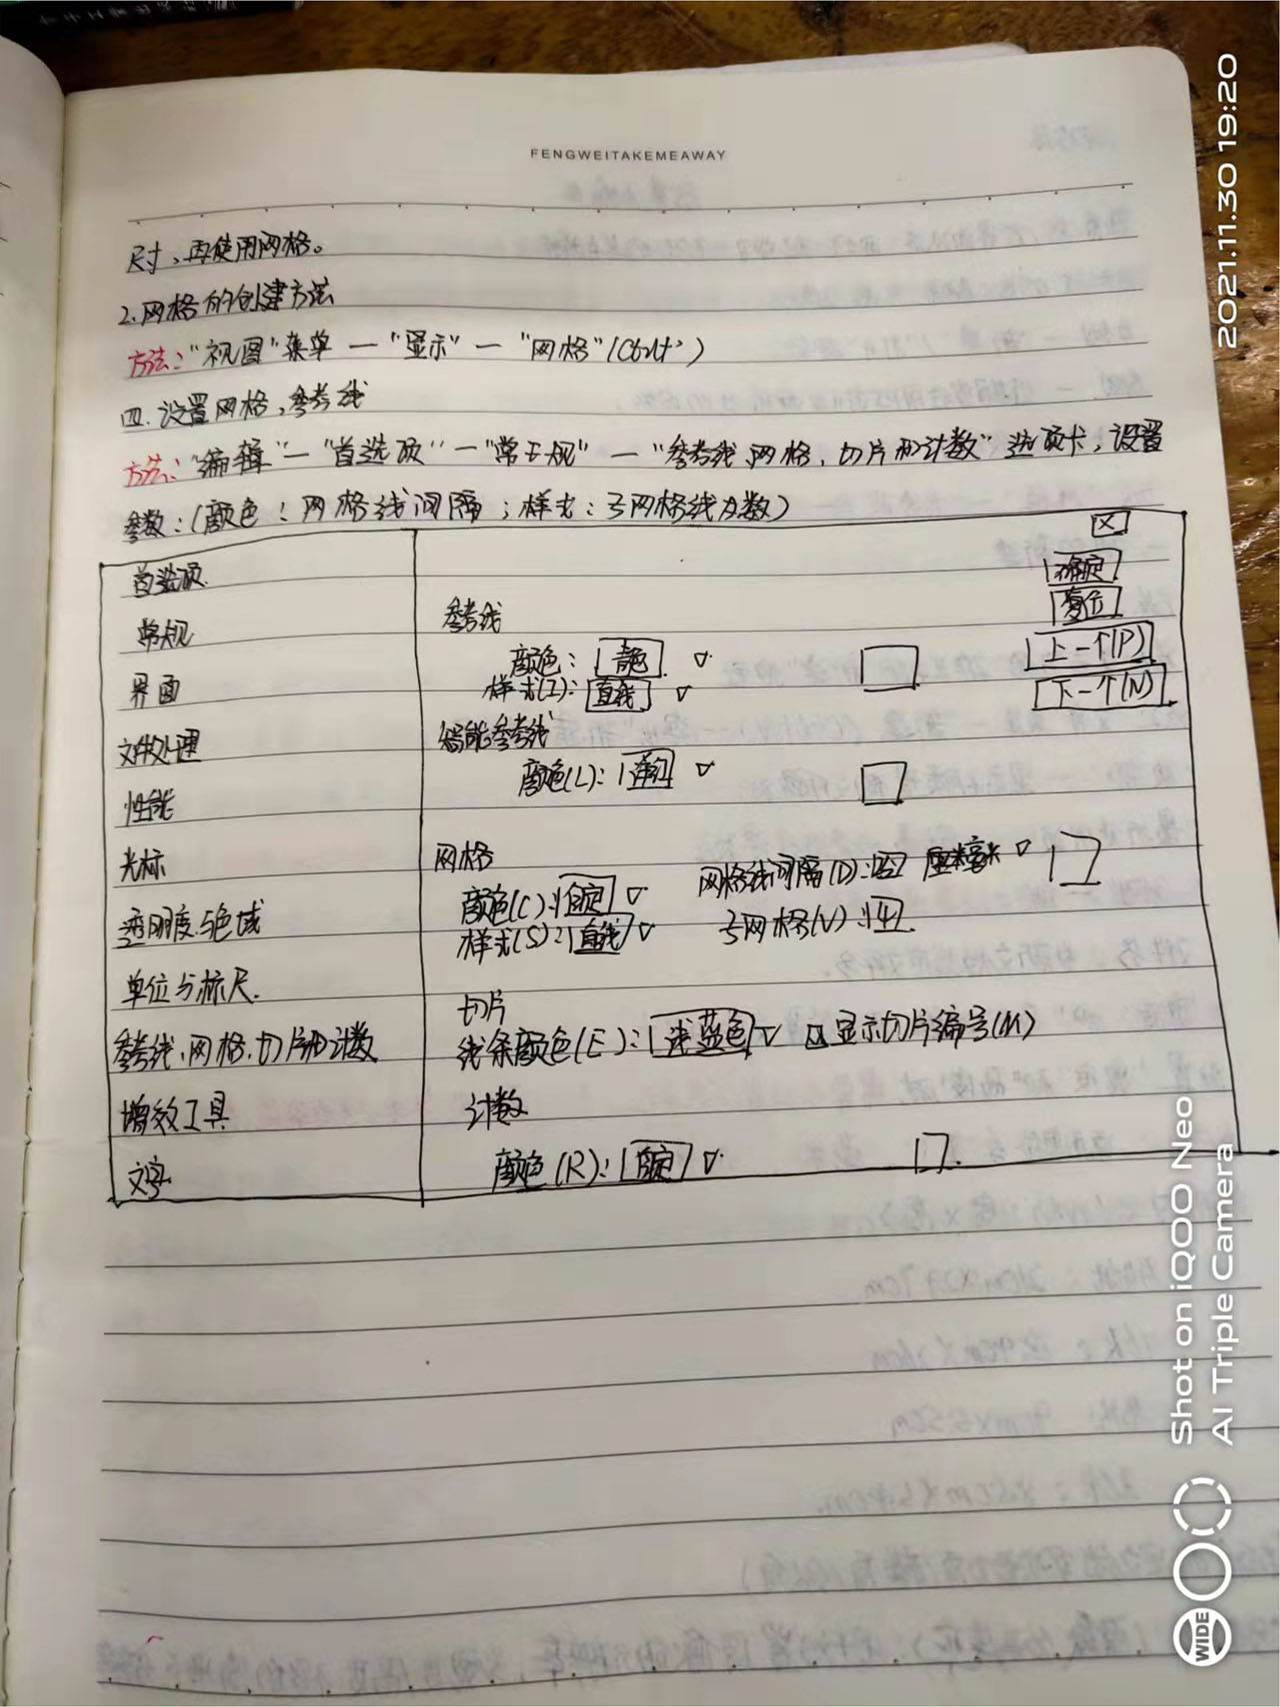 FENGWEITAKEMEAWAY
尺寸,再使用网格。
2.网格的创建方法
方法:"视图"菜单 — "显示" — "网格"(Ctrl+')
四.设置网格,参考线
方法:"编辑" — "首选项" — "常规" — "参考线、网格、切片和计数"选项卡,设置
参数:(颜色;网格线间隔;样式:子网格线为数)
首选项
常规
界面
文件处理
性能
光标
透明度与色域
单位与标尺.
参考线、网格、切片和计数
增效工具
文字
X
确定
复位
上一个(P)
下一个(N)
参考线
颜色: 青色
样式(I): 直线
智能参考线
颜色(L): 洋红
网格
颜色(C): 自定
网格线间隔(D): 毫米
样式(S): 直线
子网格(V): 4
切片
线条颜色(E): 浅蓝色 显示切片编号(M)
计数
颜色(R): 自定
2021.11.30 19:20
Shot on iQOO Neo
AI Triple Camera
WIDE